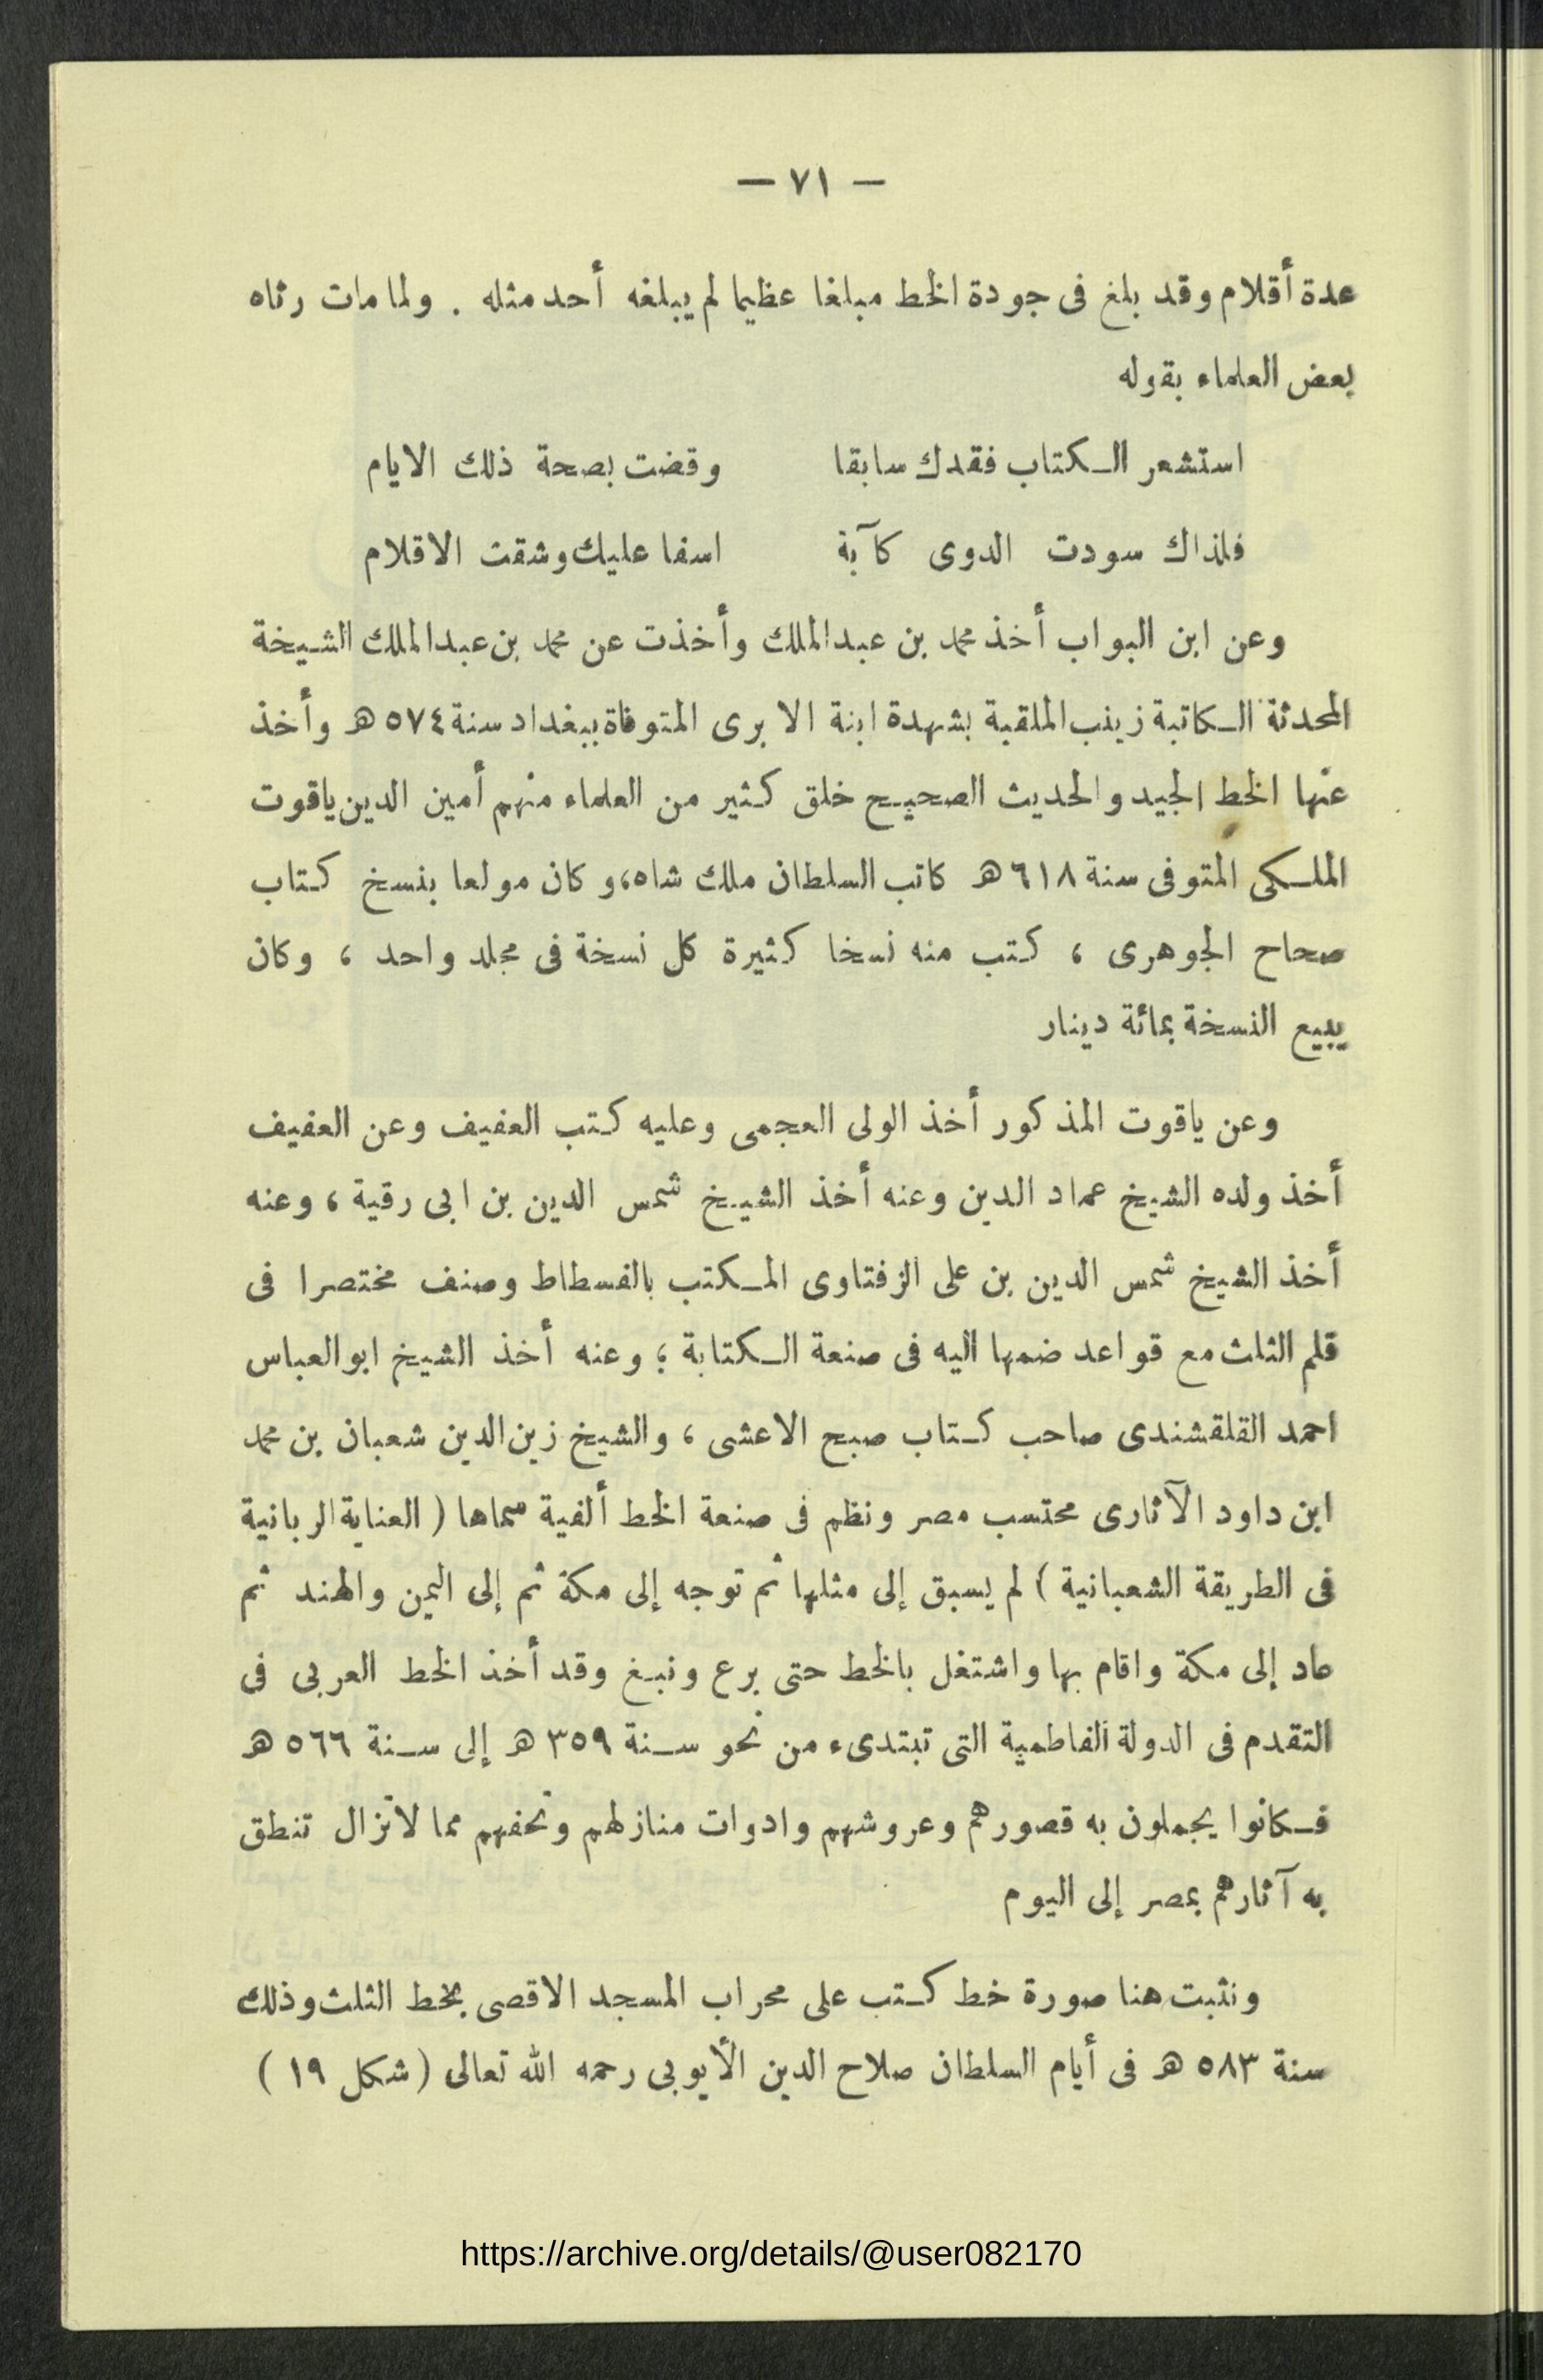 — ٧١ —
عدة أقلام وقد بلغ فى جودة الخط مبلغا عظيما لم يبلغه أحد مثله . ولما مات رثاه
بعض العلماء بقوله
استشعر الكتاب فقدك سابقا وقضت بصحة ذلك الايام
فلذاك سودت الدوى كآبة اسفا عليك وشقت الاقلام
وعن ابن البواب أخذ محمد بن عبدالملك وأخذت عن محمد بن عبدالملك الشيخة
المحدثة الكاتبة زينب الملقبة بشهدة ابنة الابرى المتوفاة ببغداد سنة ٥٧٤ هـ وأخذ
عنها الخط الجيد والحديث الصحيح خلق كثير من العلماء منهم أمين الدين ياقوت
الملكى المتوفى سنة ٦١٨ هـ كاتب السلطان ملك شاه، وكان مولعا بنسخ كتاب
صحاح الجوهرى ، كتب منه نسخا كثيرة كل نسخة فى مجلد واحد ، وكان
يبيع النسخة بمائة دينار
وعن ياقوت المذكور أخذ الولى العجمى وعليه كتب العفيف وعن العفيف
أخذ ولده الشيخ عماد الدين وعنه أخذ الشيخ شمس الدين بن ابى رقية ، وعنه
أخذ الشيخ شمس الدين بن على الزفتاوى المكتب بالفسطاط وصنف مختصرا فى
قلم الثلث مع قواعد ضمها اليه فى صنعة الكتابة ؛ وعنه أخذ الشيخ ابو العباس
احمد القلقشندى صاحب كتاب صبح الاعشى ، والشيخ زين الدين شعبان بن محمد
ابن داود الآثارى محتسب مصر ونظم فى صنعة الخط ألفية سماها ( العناية الربانية
فى الطريقة الشعبانية ) لم يسبق إلى مثلها ثم توجه إلى مكة ثم إلى اليمن والهند ثم
عاد إلى مكة واقام بها واشتغل بالخط حتى برع ونبغ وقد أخذ الخط العربى فى
التقدم فى الدولة الفاطمية التى تبتدىء من نحو سنة ٣٥٩ هـ إلى سنة ٥٦٦ هـ
فكانوا يجملون به قصورهم وعروشهم وادوات منازلهم وتحفهم مما لاتزال تنطق
به آثارهم بمصر إلى اليوم
ونثبت هنا صورة خط كتب على محراب المسجد الاقصى بخط الثلث وذلك
سنة ٥٨٣ هـ فى أيام السلطان صلاح الدين الأيوبى رحمه الله تعالى ( شكل ١٩ )
https://archive.org/details/@user082170